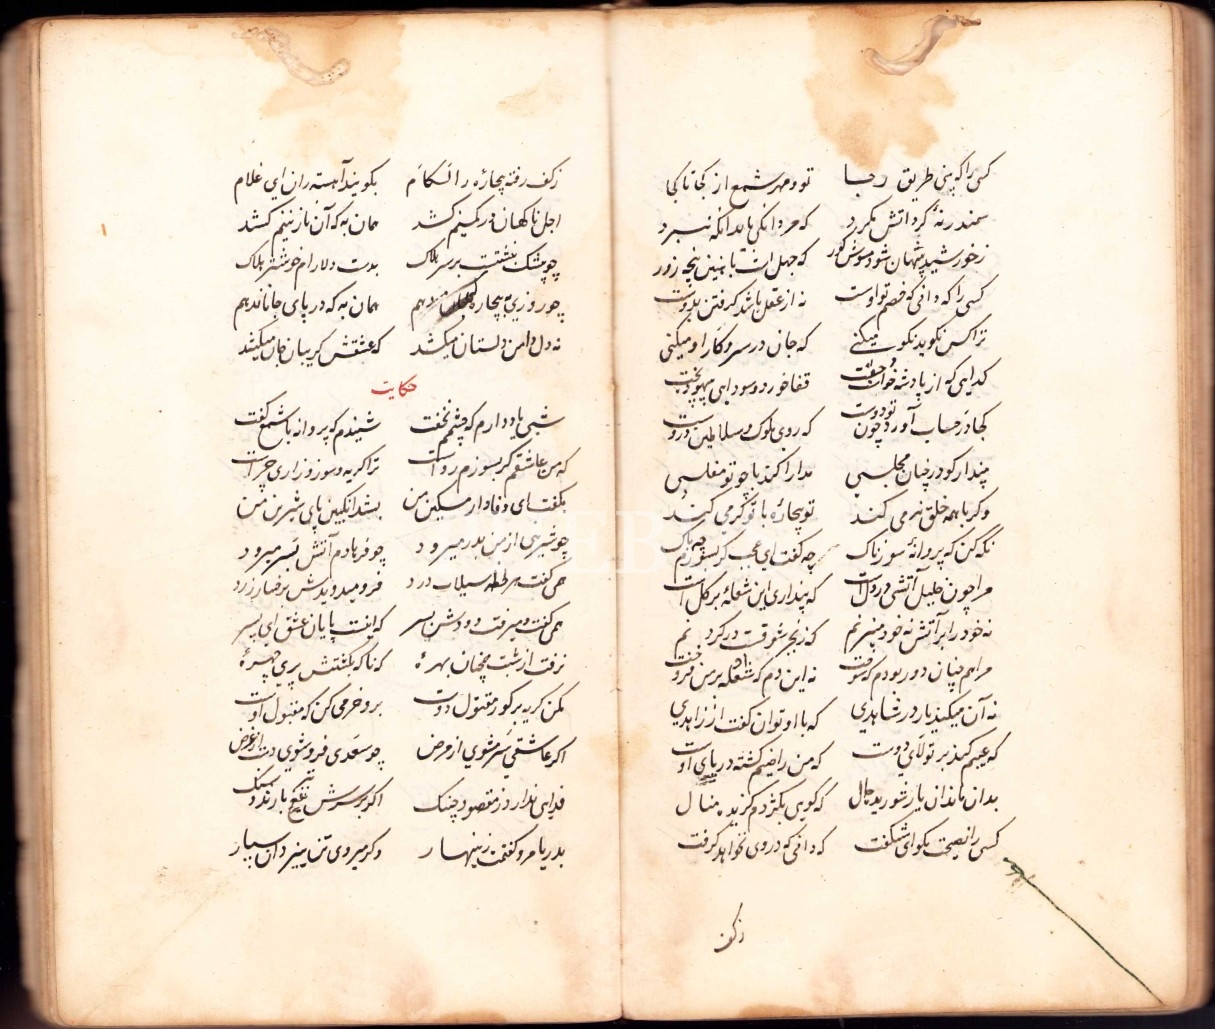 کسی را که بینی طریق رجا تو و مهر شمع از کجا تا کجا
سمندر نه گرد آتش مگرد که مردانگی باید آنگه نبرد
ز خورشید پنهان شود موش کور که جهل است با آهنین پنجه زور
کسی را که دانی که خصم تو اوست نه از عقل باشد گرفتن بدوست
ترا کس نگوید نکو میکنی که جان در سر و کار او میکنی
گدایی که از پادشه خواست دخت قفا خورد و سودای بیهوده پخت
کجا در حساب آورد چون تو دوست که روی ملوک و سلاطین دروست
مپندار کو در چنان مجلسی مدارا کند با چو تو مفلسی
وگر با همه خلق نرمی کند تو بیچاره با تو گرمی کند
نگه کن که پروانه سوزناک چه گفت ای عجب گر بسوزم چه باک
مرا چون خلیل آتشی در دل است که پنداری این شعله بر گل است
نه خود را بر آتش بخود میزنم که زنجیر شوقست در گردنم
مرا هم چنان دور بودم که سوخت نه این دم که شعله برمن فروخت
نه آن میکند یار در شاهدی که با او توان گفت از زاهدی
که عیبم کند بر تولای دوست که من راضیم کشته در پای اوست
بدان ماند اندرز شوریده حال که گویی بکژدم گزیده منال
کسی را نصیحت مگو ای شگفت که دانی که در وی نخواهد گرفت
ز کف
ز کف رفته بیچاره را لگام بگویند آهسته ران ای غلام
اجل ناگهان در کمینم کشد همان به که آن نازنینم کشد
چو بیشک نبشتت بر سر هلاک بدست دلارام خوشتر هلاک
چو روزی به بیچارگی جان دهم همان به که در پای جانان دهم
نه دل دامن دلستان میکشد که عشقش گریبان جان میکشد
حکایت
شبی یاد دارم که چشمم نخفت شنیدم که پروانه با شمع گفت
که من عاشقم گر بسوزم رواست ترا گریه و سوز و زاری چراست
بگفت ای وفادار مسکین من بشد انگبین یار شیرین من
چو شیرینی از من بدر میرود چو فرهادم آتش بسر میرود
همی گفت و هر لحظه سیلاب درد فرو میدویدش برخسار زرد
همی گفت و میرفت دودش بسر که اینست پایان عشق ای پسر
نرفت از شب همچنان بهره که ناگه بکشتش پری چهره
مکن گریه بر گور مقتول دوست برو خرمی کن که مقبول اوست
اگر عاشقی سر مشوی از مرض چو سعدی فروشوی دست از غرض
فدایی ندارد ز مقصود چنگ اگر بر سرش تیغ بارند و سنگ
بدریا مرو گفتمت زینهار وگر میروی تن بمیردان سپار